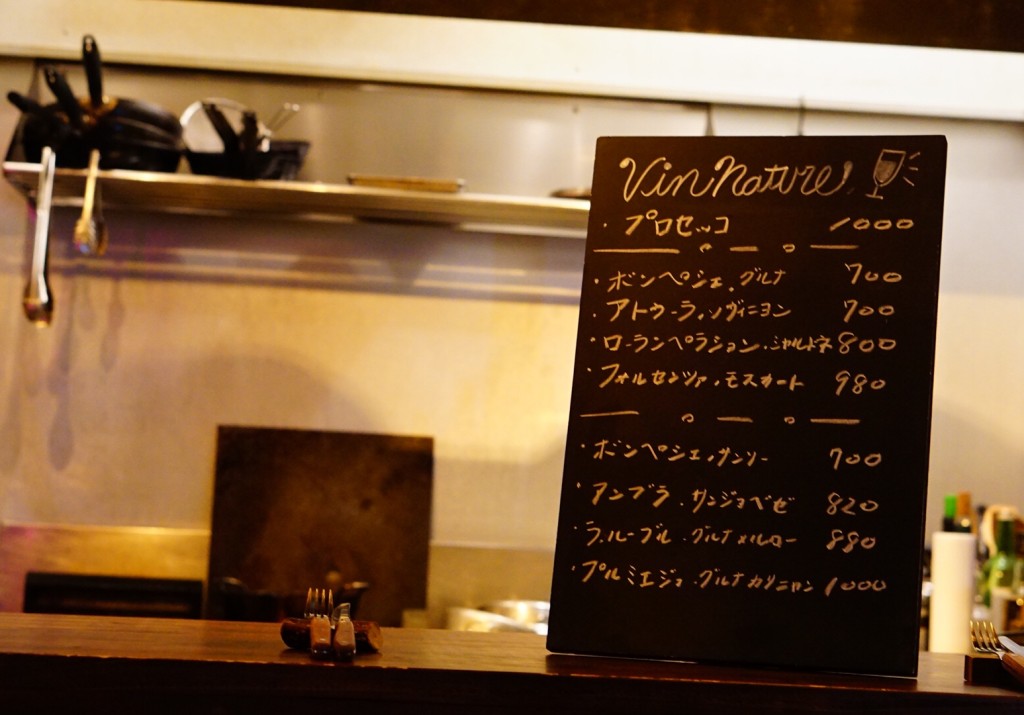 Vin Nature
・プロセッコ 1000
・ボンペシェ.グルナ 700
・アトゥーラ.ソヴィニヨン 700
・ローランペラション.シャルドネ 800
・フォルセンツァ.モスカート 980
・ボンペシェ.サンソー 700
・アンブラ.サンジョベゼ 820
・ラ.ルーブル.グルナメルロー 880
・プルミエジョ.グルナカリニャン 1000